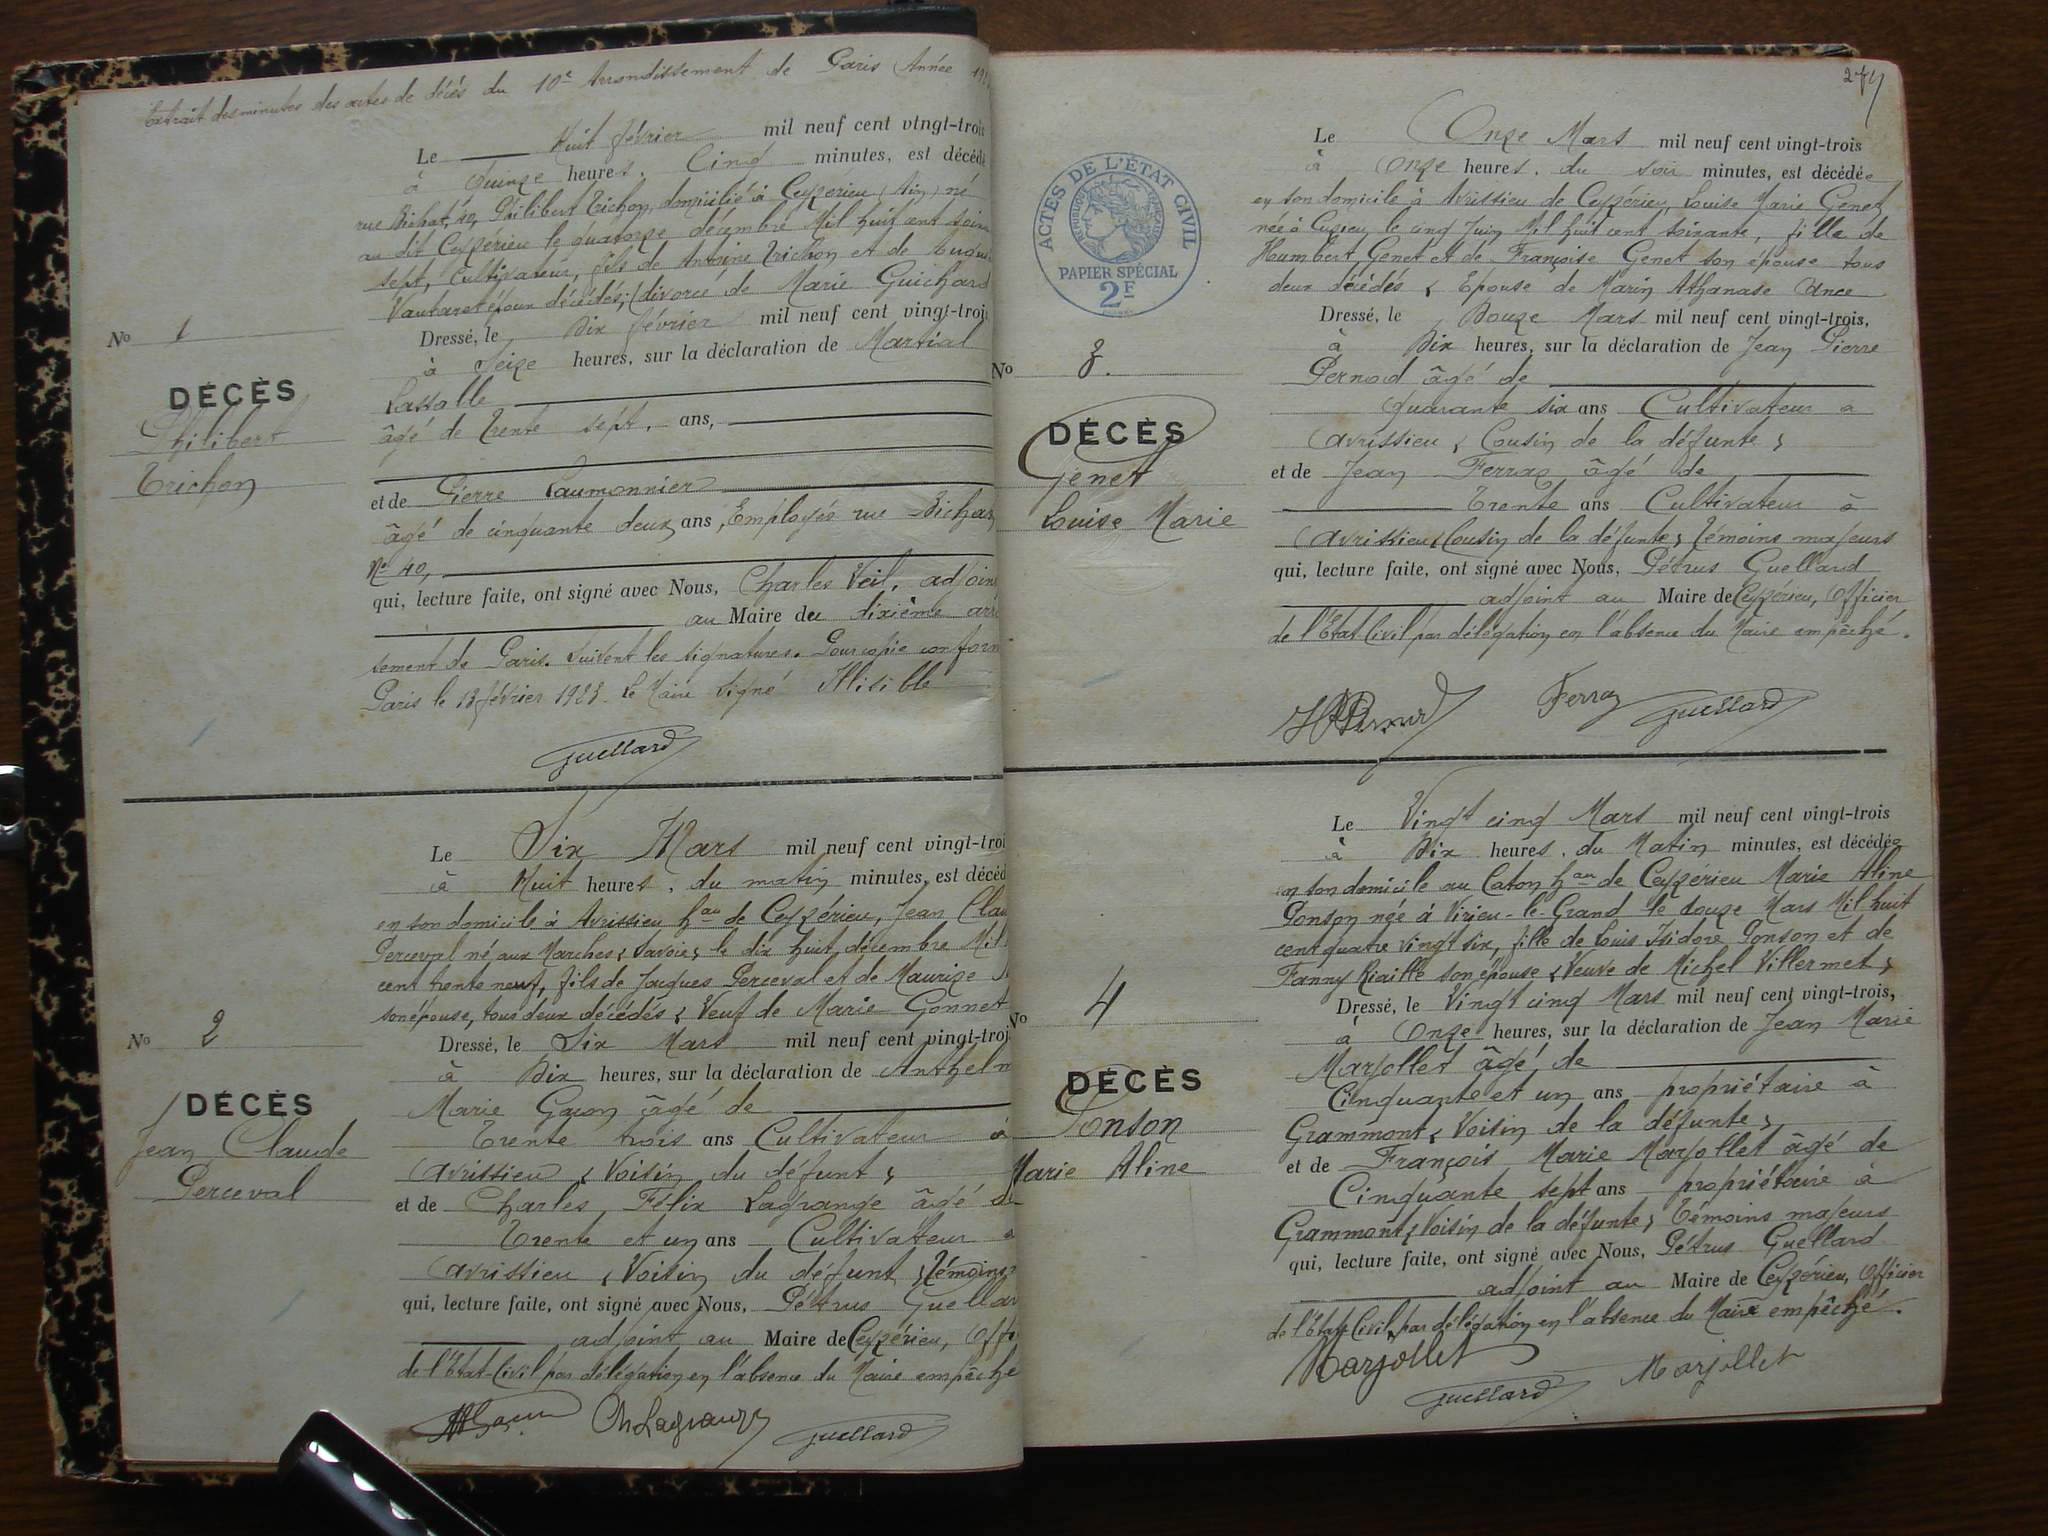 Extrait des minutes des actes de décès du 10e Arrondissement de Paris Année
Le Huit février mil neuf cent vingt-trois
à Quinze heures. Cinq minutes, est décédé
rue Bichat, 40, Philibert Trichon, domicilié à Ceyzérieu (Ain) né
au dit Ceyzérieu le quatorze décembre Mil huit cent soixan
sept, Cultivateur, fils de Antoine Trichon et de
Vautaret époux décédés; (divorcé de Marie Guichard
Dressé, le Dix février mil neuf cent vingt-trois
à Seize heures, sur la déclaration de Martial
Lassalle
âgé de Trente sept, ans,
et de Pierre Laumonnier
âgé de cinquante deux ans, Employés rue Bichat
No 40,
qui, lecture faite, ont signé avec Nous, Charles Veil, adjoint
au Maire du dixième arr
sement de Paris. Suivent les signatures. Pour copie conform
Paris le 13 février 1923. Le Maire signé Illisible
Guellard
No 1
DÉCÈS
Philibert
Trichon
Le Six Mars mil neuf cent vingt-troi
à Huit heures, du matin minutes, est décéd
en son domicile à Avrissieu hau de Ceyzérieu, Jean Clau
Perceval né aux Marches (Savoie) le dix huit décembre Mil
cent trente neuf, fils de Jacques Perceval et de Maurize
son épouse, tous deux décédés (Veuf de Marie Gonnet
Dressé, le Six Mars mil neuf cent vingt-troi
à Dix heures, sur la déclaration de Anthelm
Marie Gacon âgé de
Trente trois ans Cultivateur à
Avrissieu (Voisin du défunt)
et de Charles Félix Lagrange âgé de
Trente et un ans Cultivateur a
Avrissieu (Voisin du défunt) Témoins
qui, lecture faite, ont signé avec Nous, Pétrus Guellar
adjoint au Maire de Ceyzérieu, Offi
de l'Etat-Civil par délégation en l'absence du Maire empêché
Ch Lagrange
Guellard
No 2
DÉCÈS
Jean Claude
Perceval
274
Le Onze Mars mil neuf cent vingt-trois
à Onze heures. du soir minutes, est décédée
en son domicile à Avrissieu de Ceyzérieu, Louise Marie Genet
née à Cuzieu, le cinq Juin Mil huit cent soixante, fille de
Humbert Genet et de Françoise Genet son épouse tous
deux décédés ( Epouse de Marin Athanase Ance
Dressé, le Douze Mars mil neuf cent vingt-trois,
à Dix heures, sur la déclaration de Jean Pierre
Pernod âgé de
quarante six ans Cultivateur a
Avrissieu (Cousin de la défunte)
et de Jean Ferraz âgé de
Trente ans Cultivateur à
Avrissieu (Cousin de la défunte) Témoins majeurs
qui, lecture faite, ont signé avec Nous, Pétrus Guellard
adjoint au Maire de Ceyzérieu, Officier
de l'Etat Civil par délégation en l'absence du Maire empêché.
Ferraz
Guellard
ACTES DE L'ÉTAT CIVIL
RÉPUBLIQUE FRANÇAISE
PAPIER SPÉCIAL
2F
No 3.
DÉCÈS
Genet
Louise Marie
Le Vingt cinq Mars mil neuf cent vingt-trois
à Dix heures. du Matin minutes, est décédée
en son domicile au Caton hau de Ceyzérieu Marie Aline
Ponson née à Virieu-le-Grand le douze Mars Mil huit
cent quatre vingt six, fille de Louis Isidore Ponson et de
Fanny Riaille son épouse (Veuve de Michel Villermet)
Dressé, le Vingt cinq Mars mil neuf cent vingt-trois,
à Onze heures, sur la déclaration de Jean Marie
Marjollet âgé de
Cinquante et un ans propriétaire à
Grammont (Voisin de la défunte)
et de François Marie Marjollet âgé de
Cinquante sept ans propriétaire à
Grammont (Voisin de la défunte) Témoins majeurs
qui, lecture faite, ont signé avec Nous, Pétrus Guellard
adjoint au Maire de Ceyzérieu, Officier
de l'Etat Civil, par délégation en l'absence du Maire empêché.
Marjollet
Guellard
Marjollet
No 4
DÉCÈS
Ponson
Marie Aline